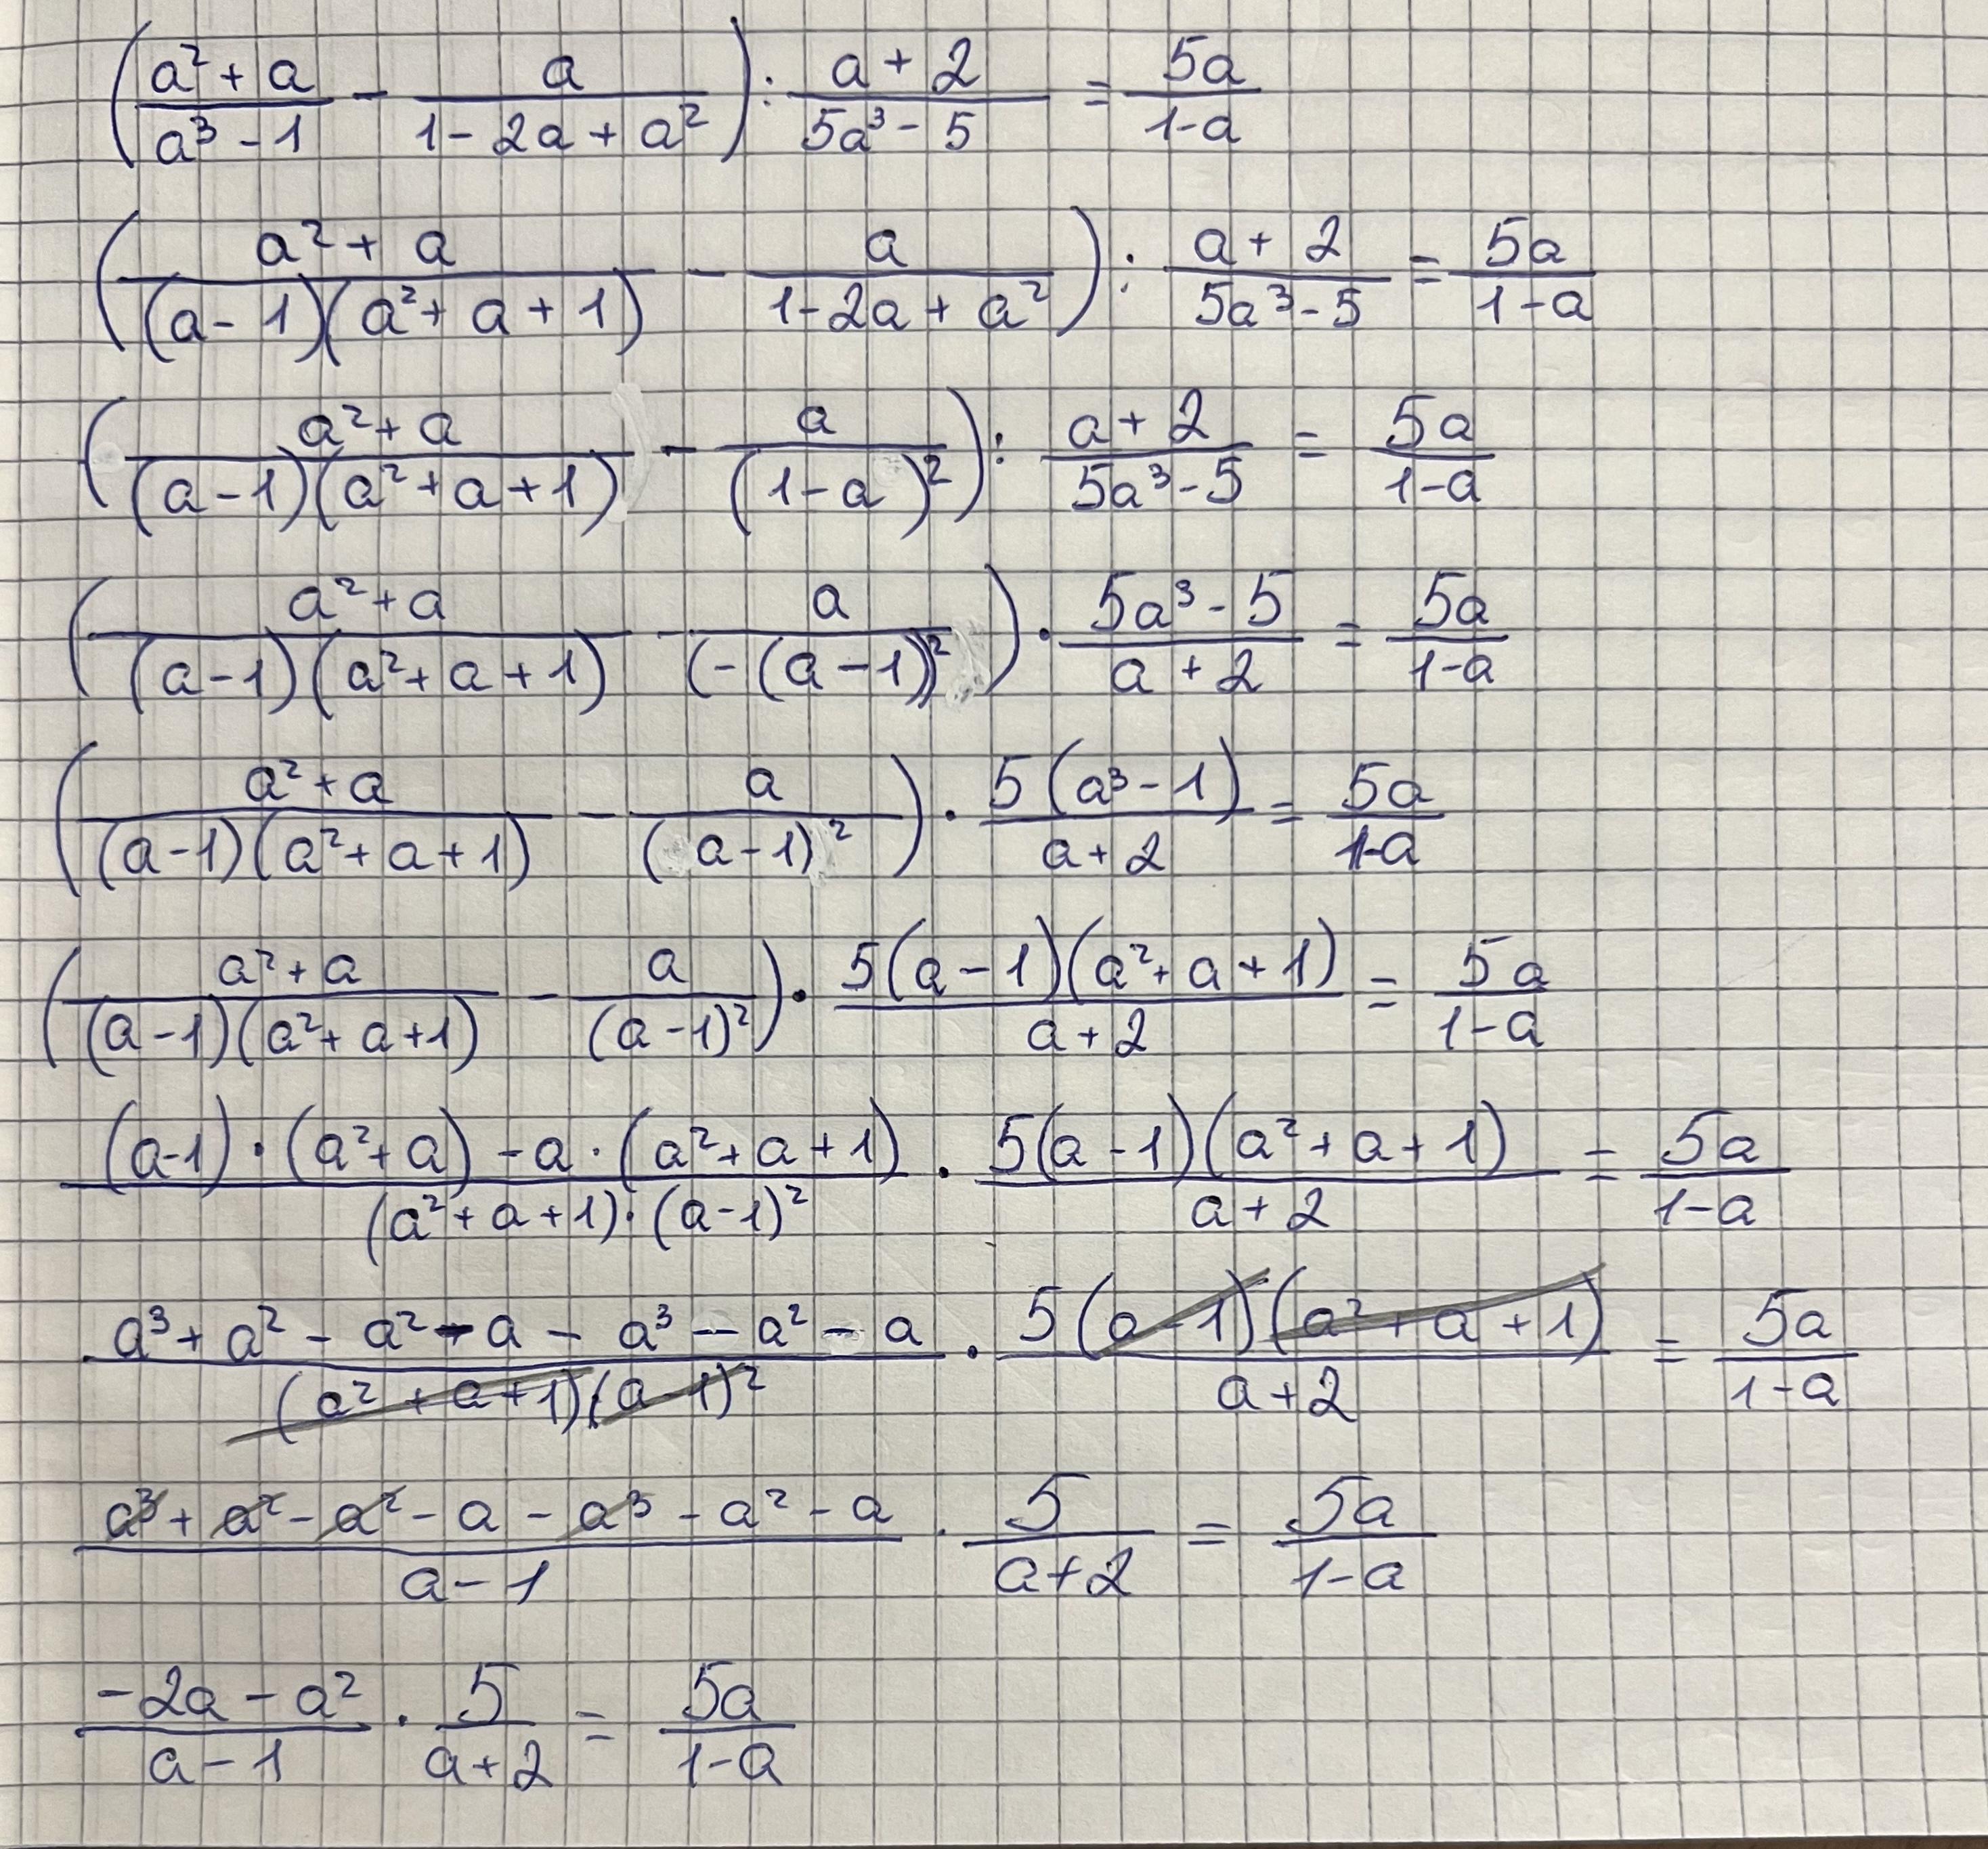 (a²+a / a³-1 - a / 1-2a+a²) : a+2 / 5a³-5 = 5a / 1-a
(a²+a / (a-1)(a²+a+1) - a / 1-2a+a²) : a+2 / 5a³-5 = 5a / 1-a
(a²+a / (a-1)(a²+a+1) - a / (1-a)²) : a+2 / 5a³-5 = 5a / 1-a
(a²+a / (a-1)(a²+a+1) - a / (-(a-1))²) · 5a³-5 / a+2 = 5a / 1-a
(a²+a / (a-1)(a²+a+1) - a / (a-1)²) · 5(a³-1) / a+2 = 5a / 1-a
(a²+a / (a-1)(a²+a+1) - a / (a-1)²) · 5(a-1)(a²+a+1) / a+2 = 5a / 1-a
(a-1)·(a²+a) -a·(a²+a+1) / (a²+a+1)·(a-1)² · 5(a-1)(a²+a+1) / a+2 = 5a / 1-a
a³+a²-a²-a-a³-a²-a / (a²+a+1)(a-1)² · 5(a-1)(a²+a+1) / a+2 = 5a / 1-a
a³+a²-a²-a-a³-a²-a / a-1 · 5 / a+2 = 5a / 1-a
-2a-a² / a-1 · 5 / a+2 = 5a / 1-a